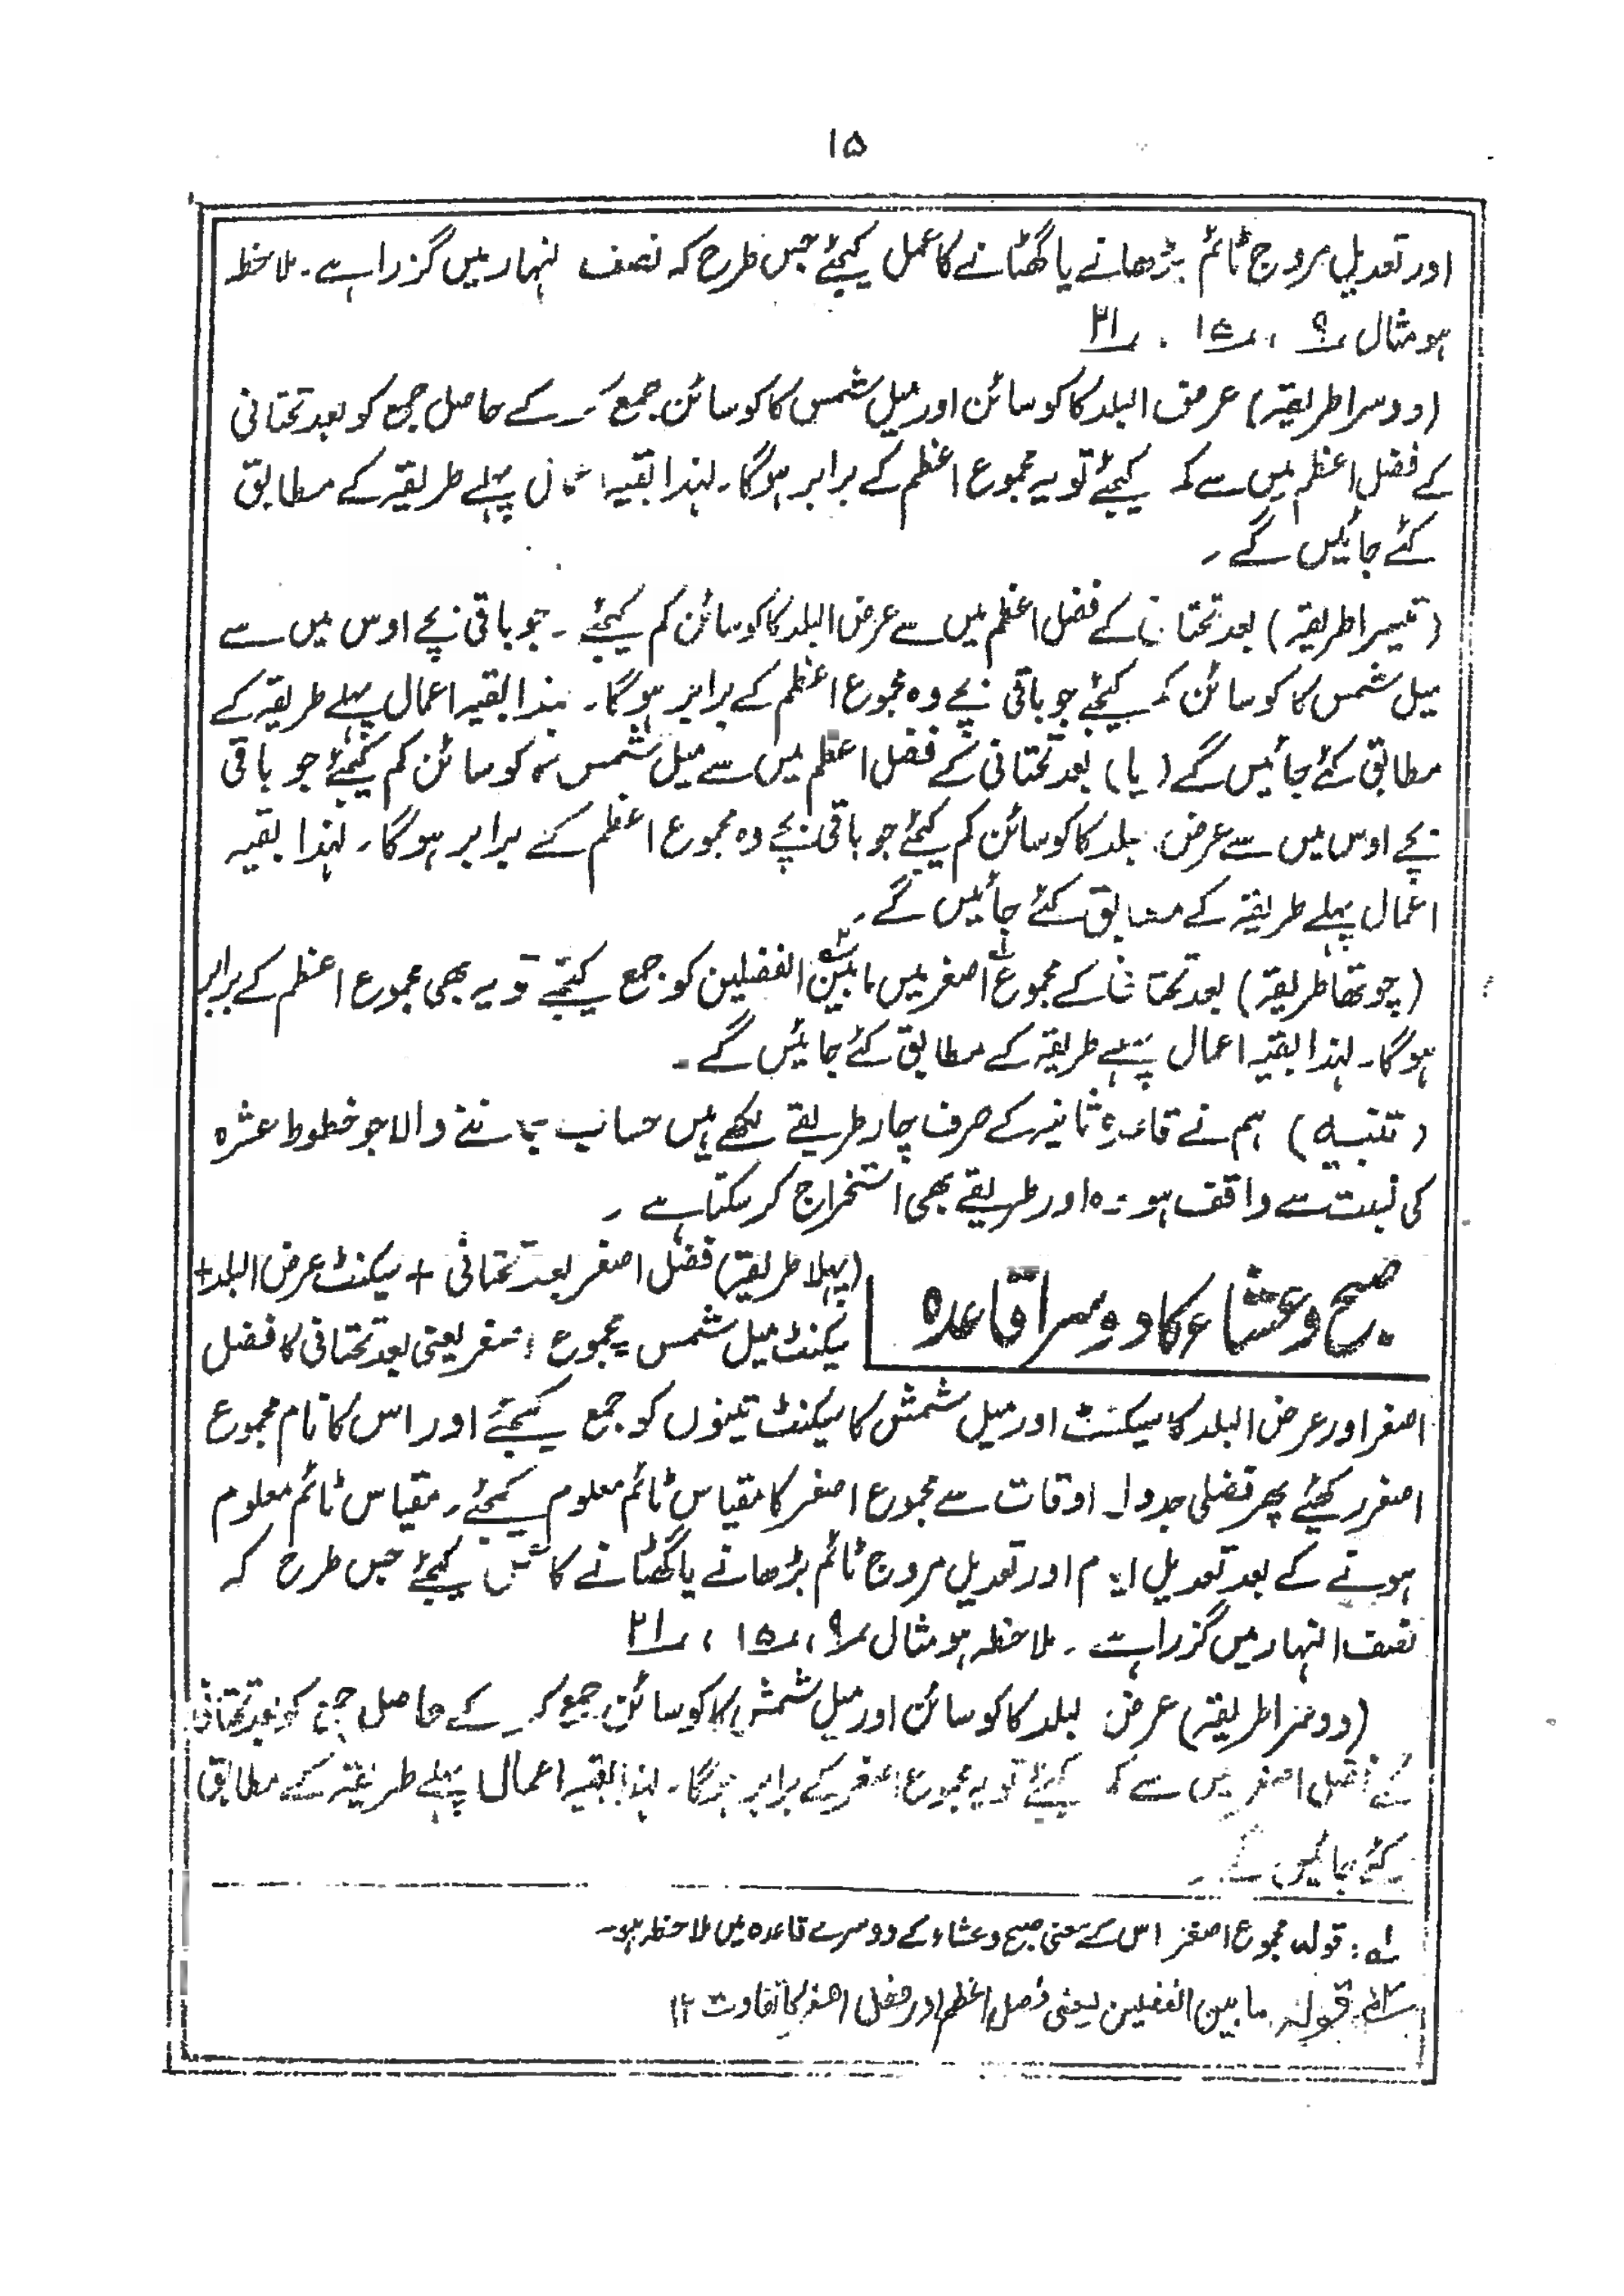 ۱۵
اور تعدیل مروج ٹائم بڑھانے یا گھٹانے کا عمل کیجئے جس طرح کہ نصف النہار میں گزرا ہے۔ ملاحظہ
ہو مثال ۹، ۱۵، ۲۱
(دوسرا طریقہ) عرض البلد کا کوسائن اور میل شمس کا کوسائن جمع کر کے حاصل جمع کو بعد تحتانی
کے فضل اعظم میں سے کم کیجئے تو یہ مجموع اعظم کے برابر ہوگا۔ لہٰذا بقیہ اعمال پہلے طریقہ کے مطابق
کئے جائیں گے۔
(تیسرا طریقہ) بعد تحتانی کے فضل اعظم میں سے عرض البلد کا کوسائن کم کیجئے۔ جو باقی بچے اوس میں سے
میل شمس کا کوسائن کم کیجئے جو باقی بچے وہ مجموع اعظم کے برابر ہوگا۔ لہذا بقیہ اعمال پہلے طریقہ کے
مطابق کئے جائیں گے (یا) بعد تحتانی کے فضل اعظم میں سے میل شمس کا کوسائن کم کیجئے جو باقی
بچے اوس میں سے عرض البلد کا کوسائن کم کیجئے جو باقی بچے وہ مجموع اعظم کے برابر ہوگا۔ لہٰذا بقیہ
اعمال پہلے طریقہ کے مطابق کئے جائیں گے۔
(چوتھا طریقہ) بعد تحتانی کے مجموع اصغر۱ میں مابین۲ الفضلین کو جمع کیجئے تو یہ بھی مجموع اعظم کے برابر
ہوگا۔ لہٰذا بقیہ اعمال پہلے طریقہ کے مطابق کئے جائیں گے۔
(تنبیہ) ہم نے قاعدہ ثانیہ کے صرف چار طریقے لکھے ہیں حساب جاننے والا جو خطوط عشرہ
کی نسبت سے واقف ہو وہ اور طریقے بھی استخراج کر سکتا ہے۔
صبح و عشاء کا دوسرا قاعدہ
(پہلا طریقہ) فضل اصغر بعد تحتانی + سیکنٹ عرض البلد +
سیکنٹ میل شمس = مجموع اصغر یعنی بعد تحتانی کا فضل
اصغر اور عرض البلد کا سیکنٹ اور میل شمس کا سیکنٹ تینوں کو جمع کیجئے اور اس کا نام مجموع
اصغر رکھیئے پھر فضلی جدول اوقات سے مجموع اصغر کا مقیاس ٹائم معلوم کیجئے۔ مقیاس ٹائم معلوم
ہونے کے بعد تعدیل ایام اور تعدیل مروج ٹائم بڑھانے یا گھٹانے کا عمل کیجئے جس طرح کہ
نصف النہار میں گزرا ہے۔ ملاحظہ ہو مثال ۹، ۱۵، ۲۱
(دوسرا طریقہ) عرض البلد کا کوسائن اور میل شمس کا کوسائن جمع کر کے حاصل جمع کو بعد تحتانی
کے فضل اصغر میں سے کم کیجئے تو یہ مجموع اصغر کے برابر ہوگا۔ لہذا بقیہ اعمال پہلے طریقہ کے مطابق
کئے جائیں گے۔
۱؎: قولہ مجموع اصغر اس کے معنی صبح و عشاء کے دوسرے قاعدہ میں ملاحظہ ہو۔
۲؎ قولہ مابین الفضلین یعنی فضل اعظم اور فضل اصغر کا تفاوت ۱۲